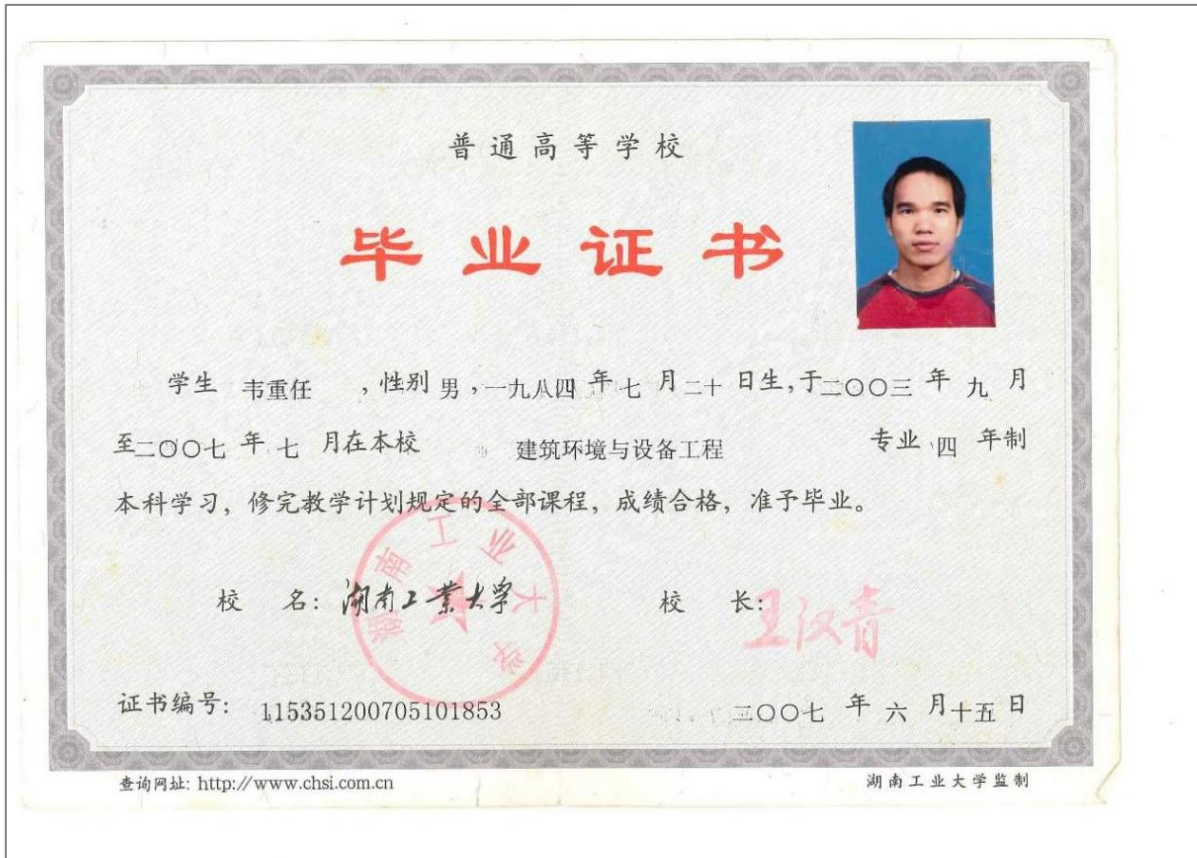 普通高等学校
毕业证书
学生 韦重任 ，性别 男 ，一九八四 年 七 月 二十 日生，于二〇〇三 年 九 月
至二〇〇七 年 七 月在本校 建筑环境与设备工程 专业 四 年制
本科学习，修完教学计划规定的全部课程，成绩合格，准予毕业。
校 名：湖南工業大学 校 长：王汉青
湖南工业大学
证书编号： 115351200705101853 二〇〇七 年 六 月十五 日
查询网址: http://www.chsi.com.cn 湖南工业大学监制